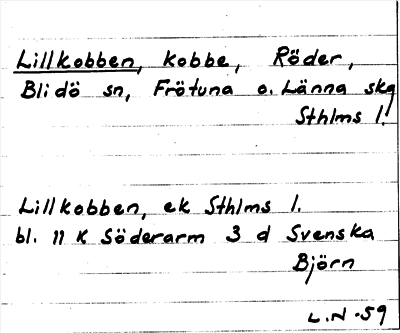 Lillkobben, kobbe, Röder,
Blidö sn, Frötuna o. Länna skg
Sthlms l.
Lillkobben, ek Sthlms l.
bl. 11 K Söderarm 3 d Svenska
Björn
L.N -59